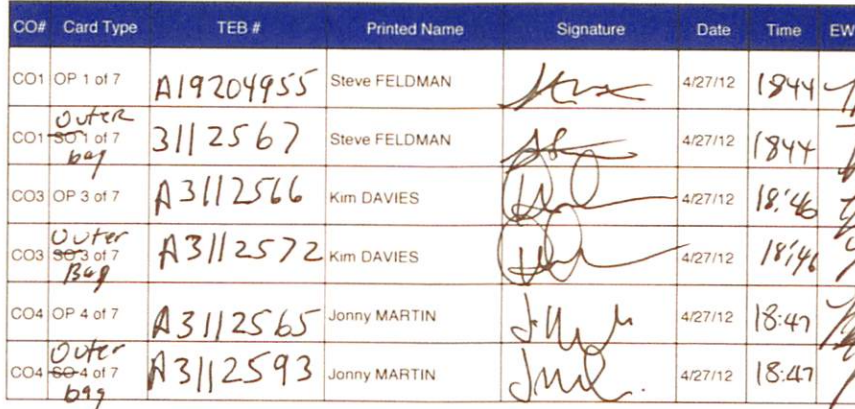 CO# Card Type TEB # Printed Name Signature Date Time EW
CO1 OP 1 of 7 A19204955 Steve FELDMAN 4/27/12 1844
Outer
CO1 SO 1 of 7 3112567 Steve FELDMAN 4/27/12 1844
bag
CO3 OP 3 of 7 A3112566 Kim DAVIES 4/27/12 18:46
Outer
CO3 SO 3 of 7 A3112572 Kim DAVIES 4/27/12 18:46
Bag
CO4 OP 4 of 7 A3112565 Jonny MARTIN 4/27/12 18:47
Outer
CO4 SO 4 of 7 A3112593 Jonny MARTIN 4/27/12 18:47
bag